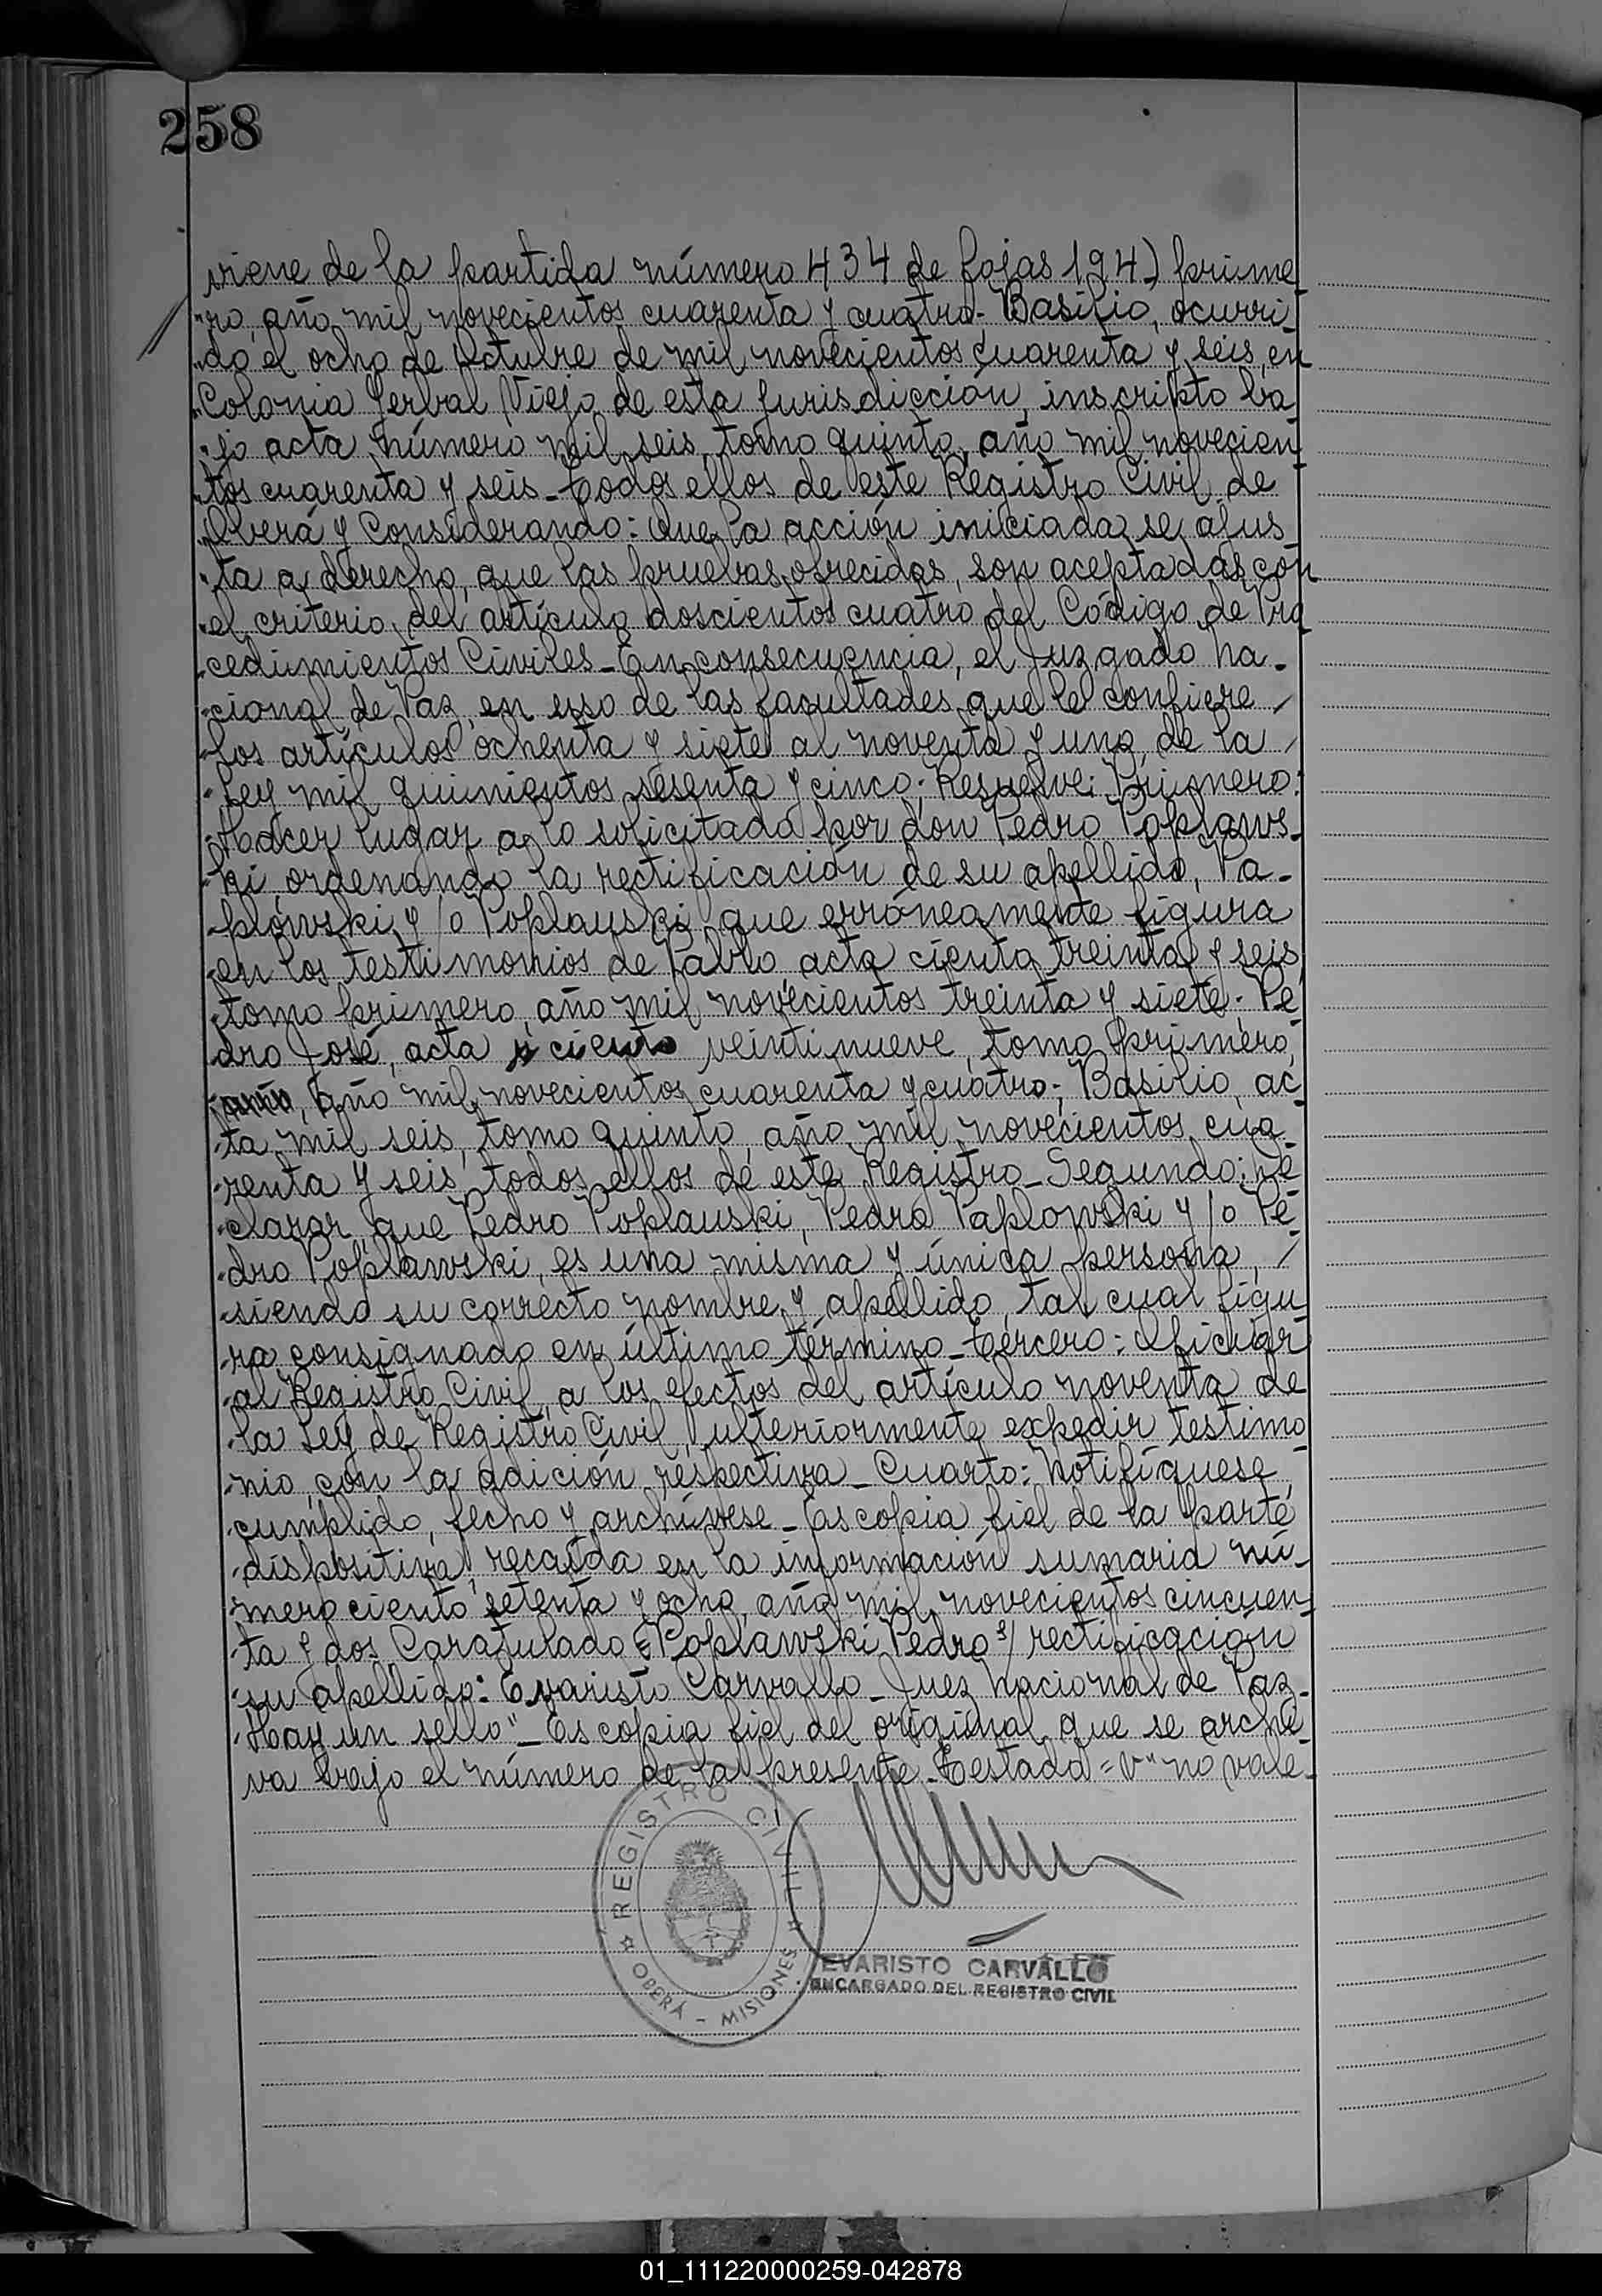 258
viene de la partida número 434 de fojas 194) prime
"ro, año mil novecientos cuarenta y cuatro.- Basilio, ocurri_
"do el ocho de Octubre de mil novecientos cuarenta y seis, en
"Colonia Yerbal Viejo de esta Jurisdicción, inscripto ba
"jo acta número mil seis, tomo quinto, año mil novecien
"tos cuarenta y seis_ Todos ellos de este Registro Civil de
"Oberá y Considerando: Que la acción iniciada se ajus_
"ta a derecho, que las pruebas ofrecidas, son aceptadas con
"el criterio del artículo doscientos cuatro del Código de Pro
"cedimientos Civiles_ En consecuencia, el Juzgado Na_
"cional de Paz, en uso de las facultades que le confiere /
"los artículos ochenta y siete al noventa y uno, de la /
"Ley mil quinientos sesenta y cinco; Resuelve: Primero:
"Hacer lugar a lo solicitado por don Pedro Poplaws_
"ki, ordenando la rectificación de su apellido, Pa_
"plowski y/o Poplauski que erróneamente figura
"en los testimonios de Pablo acta ciento treinta y seis,
"tomo primero, año mil novecientos treinta y siete.- Pe
"dro José, acta ciento veintinueve, tomo primero,
año mil novecientos cuarenta y cuatro; Basilio, ac
"ta mil seis, tomo quinto, año mil novecientos cua_
"renta y seis, todos ellos de este Registro_ Segundo: De
"clarar, que Pedro Poplauski, Pedro Paplowski y/o Pe
"dro Poplawski, es una misma y única persona, /
"siendo su correcto nombre y apellido, tal cual figu
"ra consignado en último término_ Tercero: Oficiar
"al Registro Civil, a los efectos del artículo noventa de
"la Ley de Registro Civil, ulteriormente expedir testimo
"nio, con la adición respectiva_ Cuarto: Notifíquese,
"cumplido, fecho y archívese_ (as copia fiel de la parte
"dispositiva, recaída en la información sumaria nú_
"mero ciento setenta y ocho, año mil novecientos cincuen_
"ta y dos Caratulado "Poplawski Pedro s/ rectificación
"su apellido": Evaristo Carvallo_ Juez Nacional de Paz_
"Hay un sello"_ Es copia fiel del original que se archi
va bajo el número de la presente_ Testado = v" no vale_
REGISTRO CIVIL
OBERÁ - MISIONES
EVARISTO CARVALLO
ENCARGADO DEL REGISTRO CIVIL
01_111220000259-042878